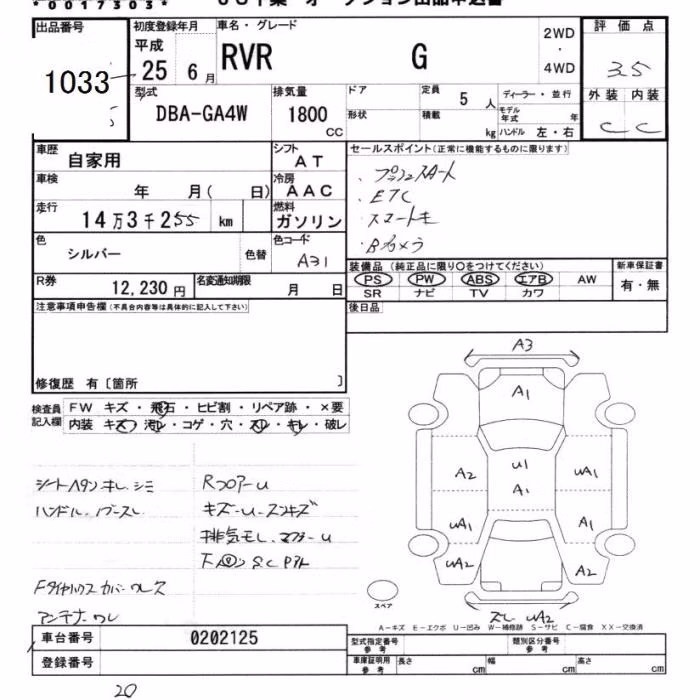 *0017303*
出品番号
1033
初度登録年月
平成
25 6月
車名・グレード
RVR G
2WD
・
4WD
評価点
3.5
外装 内装
C C
型式
DBA-GA4W
排気量
1800
CC
ドア
形状
定員
5人
積載
kg
ディーラー・並行
モデル年式 年
ハンドル 左・右
車歴
自家用
シフト
AT
車検
年 月( 日)
冷房
AAC
走行
14万3千255 km
燃料
ガソリン
色
シルバー
色替
色コード
A31
R券
12,230円
名変通知期限
月 日
セールスポイント(正常に機能するものに限ります)
・プッシュスタート
・ETC
・スマートキー
・Bカメラ
装備品 (純正品に限り〇をつけてください)
PS PW ABS エアB AW
SR ナビ TV カワ
新車保証書
有・無
後日品
注意事項申告欄(不具合内容等は具体的に記入して下さい)
修復歴 有〔箇所 〕
検査員記入欄
FW キズ・飛石・ヒビ割・リペア跡・×要
内装 キズ・汚れ・コゲ・穴・スレ・キレ・破レ
シートヘタリ キレ シミ
Rフロアーu
キズ-u-スリキズ
排気モレ、マフラーu
Fタイヤハウスカバーワレ
アンテナワレ
A3
A1
A2
U1
A1
UA1
UA1
A1
UA2
A2
スレ UA2
スペア
A-キズ E-エクボ U-凹み W-補修跡 S-サビ C-腐食 XX-交換済
車台番号
0202125
登録番号
型式指定番号
参考
類別区分番号
参考
車庫証明用
参考
長さ cm
幅 cm
高さ cm
20